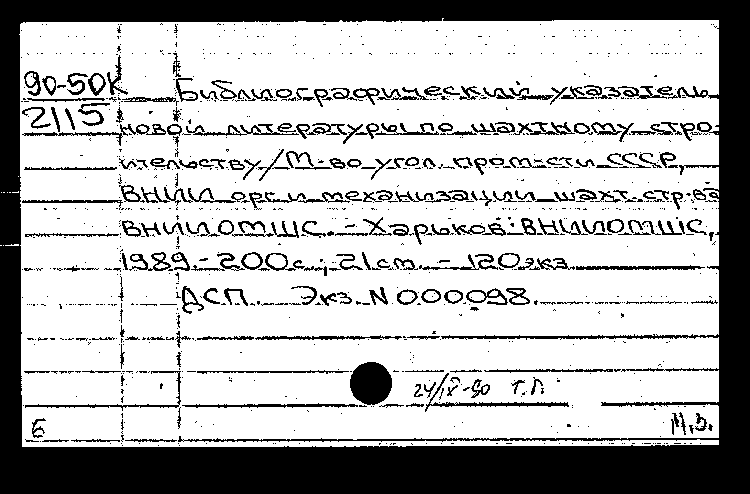 90-50К Библиографический указатель
2115 новой литературы по шахтному стро-
ительству/М-во угол. пром-сти СССР,
ВНИИ орг. и механизации шахт. стр-ва
ВНИИОМШС. - Харьков: ВНИИОМШС,
1989. - 200с.; 21см. - 120экз.
ДСП. Экз. N 000098.
24/IX-90 Т.П.
Б М.В.